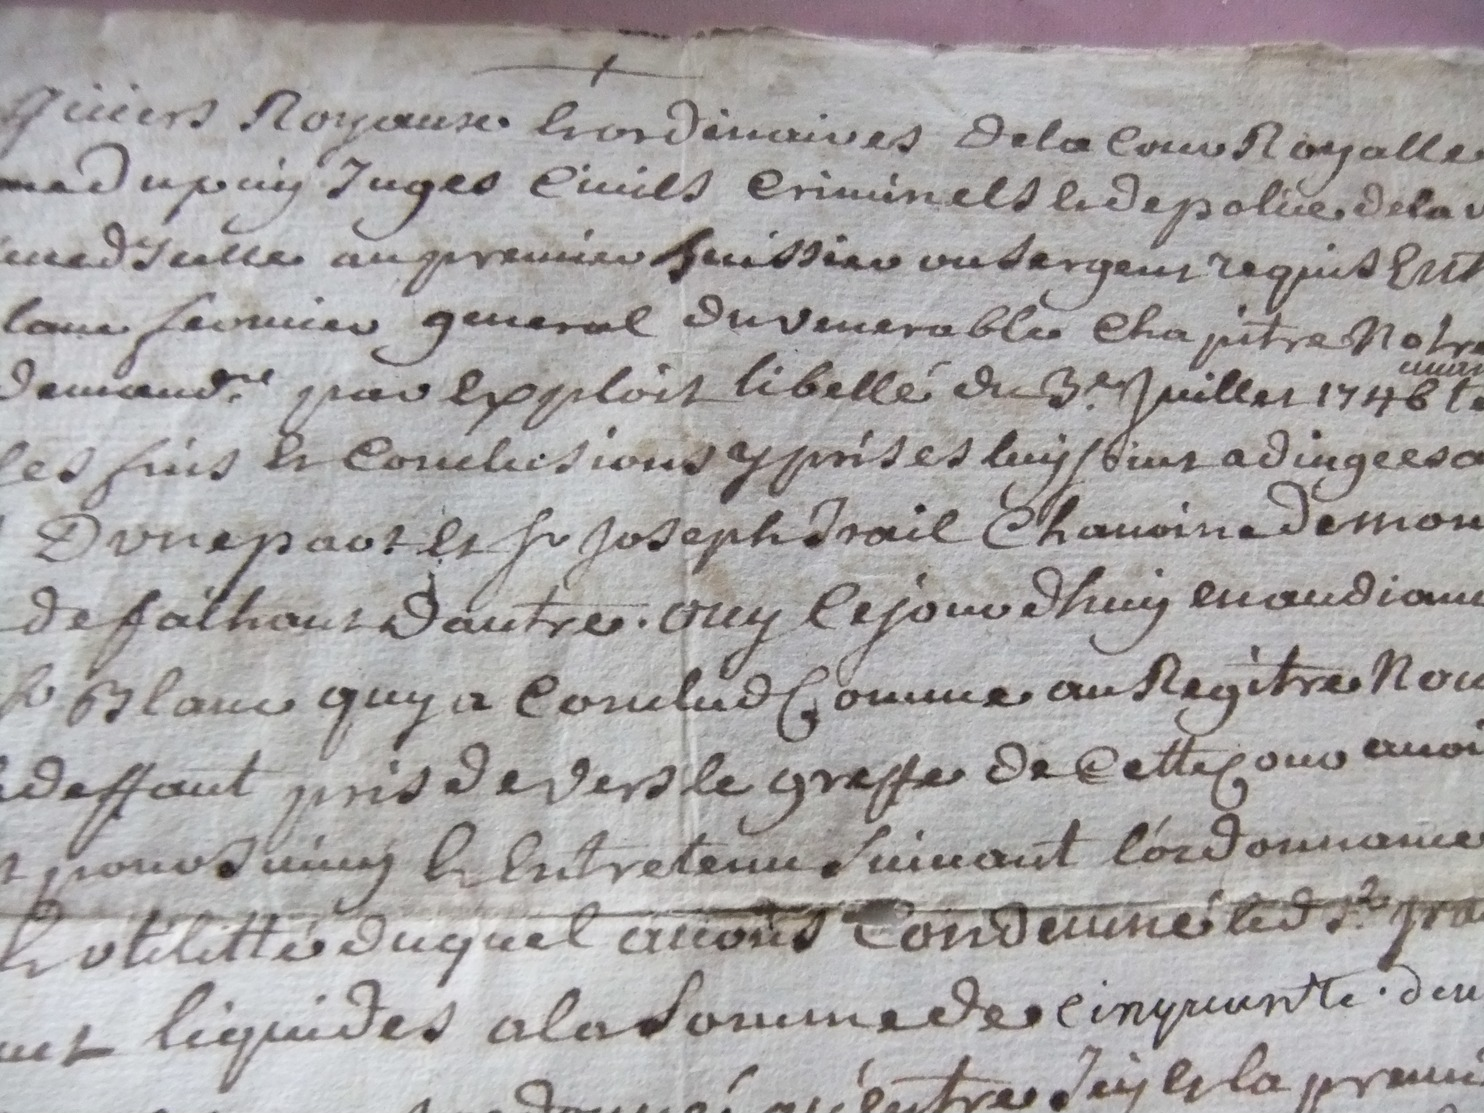 Viguiers Royaux et ordinaires de la Cour Royalle
Juges Civils Criminels et de police de la
au premier huissier ou sergent requis Ent
fermier general du venerable Chapitre Notre
demandr. par exploit libellé du 3e. Juillet 1746
les fins et Conclusions y prises luy soint adiugees a
D'une part et sr Joseph Trail Chanoine de mon
defaihant d'autre. ouy le jourdhuy en audiance
sr Blanc quy a Conclud Comme au Regitre Nous
deffaut pris devers le greffe de Cette Cour avoir
poursuivy et Entretenu suivant l'ordonnance
et utilitté duquel avons Condemné led sr.
liquides a la somme de cinquante deu
donné qu'entre Juy et la premi